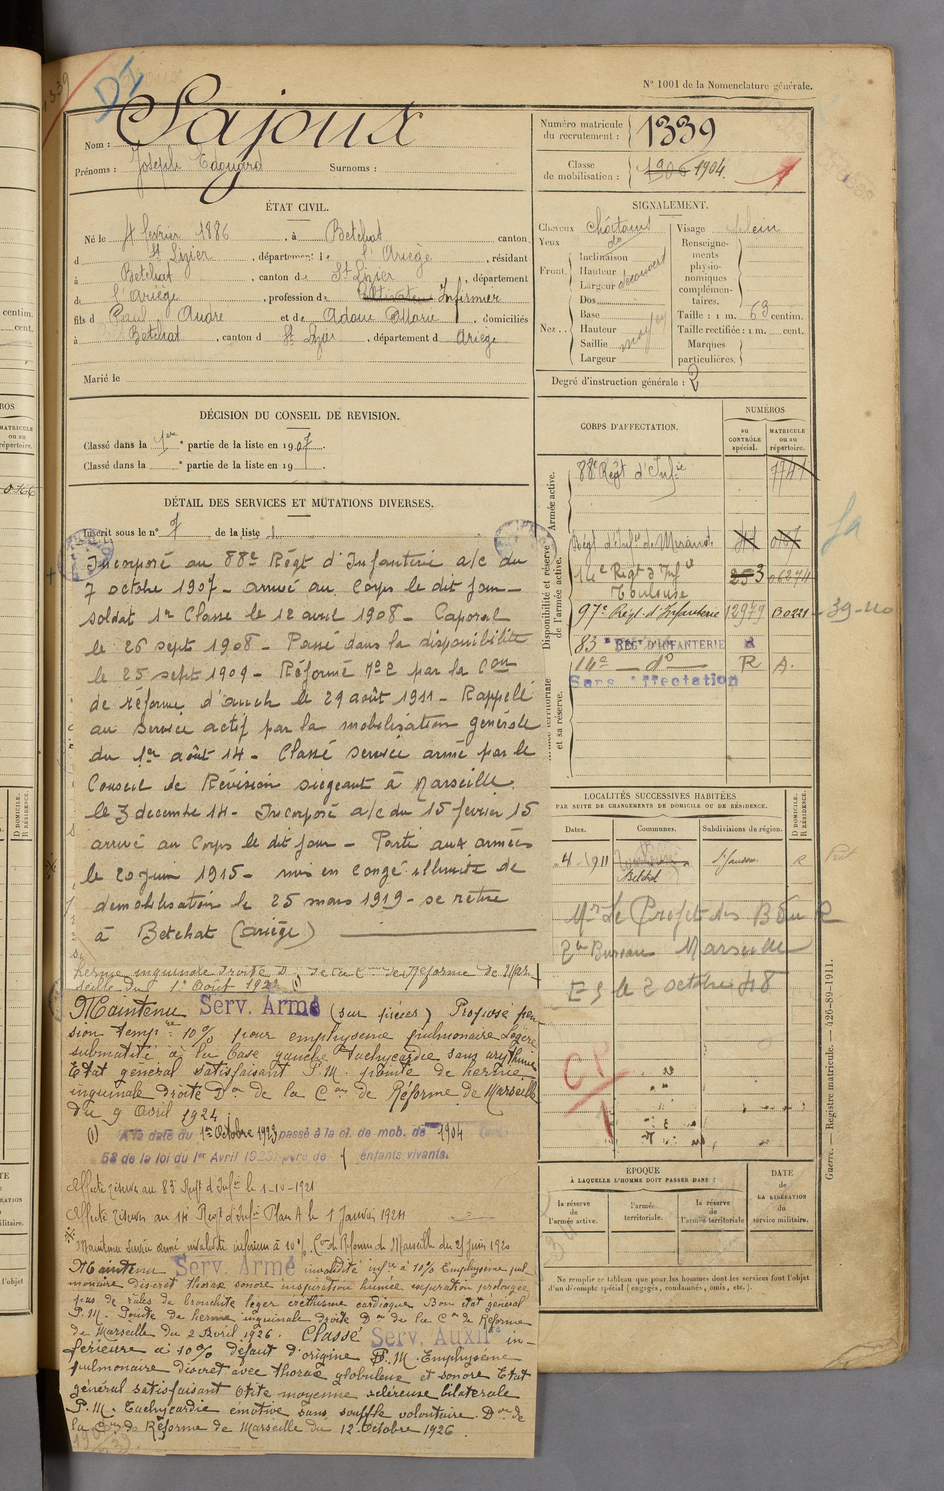 N° 1001 de la Nomenclature générale.
1339
DI
Nom : Sajoux
Prénoms : Joseph Edouard Surnoms :
Numéro matricule du recrutement : 1339
Classe de mobilisation : 1906 1904.
ÉTAT CIVIL.
Né le 4 fevrier 1886, à Betchat canton
d St Lizier, département de l'Ariège, résidant
à Betchat, canton de St Lizier, département
de l'Ariège, profession de Cultivateur Infirmier
fils d Paul André et de Adoue Marie, domiciliés
à Betchat, canton d St Lizier, département d Ariège
Marié le
SIGNALEMENT.
Cheveux châtains
Yeux do
Front Inclinaison
Hauteur
Largeur découvert
Nez Dos
Base
Hauteur moyen
Saillie
Largeur
Visage plein
Renseignements physionomiques complémentaires.
Taille : 1 m. 63 centim.
Taille rectifiée : 1 m. cent.
Marques particulières.
Degré d'instruction générale : 2
DÉCISION DU CONSEIL DE REVISION.
Classé dans la 1ère partie de la liste en 1907.
Classé dans la ° partie de la liste en 19 .
DÉTAIL DES SERVICES ET MUTATIONS DIVERSES.
Inscrit sous le n° 7 de la liste 1
Incorporé au 88e Régt d'Infanterie a/c du
7 octobre 1907 - arrivé au Corps le dit jour -
soldat 1re Classe le 12 avril 1908 - Caporal
le 26 sept 1908 - Passé dans la disponibilité
le 25 sept 1909 - Réformé no 2 par la Con
de réforme d'auch le 29 août 1911 - Rappelé
au service actif par la mobilisation générale
du 1er août 14 - Classé service armé par le
Conseil de Révision siégeant à Marseille
le 3 decembre 14 - Incorporé a/c du 15 fevrier 15
arrivé au Corps le dit jour - Parti aux armées
le 20 juin 1915 - mis en congé illimité de
demobilisation le 25 mars 1919 - se retire
à Betchat (Ariège)
hernie inguinale droite de Réforme de Mar-
seille du 1er Août 1922 (1)
Maintenu Serv. Armé (sur pièces) Proposé pen
sion tempre 10% pour emphysème pulmonaire Légère
submatité à la base gauche Tachycardie sans arythmie
Etat general satisfaisant P.M. pointe de hernie
inguinale droite Don de la Con de Réforme de Marseille
du 9 Avril 1924
(1) A la date du 1er Octobre 1923 passé à la cl. de mob. de 1904
58 de la loi du 1er Avril 1923) père de 1 enfants vivants.
Affecté réserve au 83e Regt d'Infie le 1-10-1921
Affecté réserve au 14 Regt d'Infie Plan A le 1 Janvier 1924
Maintenu service armé invalidité inférieure à 10%. Con de Réforme de Marseille du 25 Juin 1920
Maintenu Serv. Armé invalidité infre à 10% Emphysème pul
monaire discret thorax sonore inspiration humée expiration prolongée
pas de râles de bronchite leger erethisme cardiaque Bon etat general
P.M. Pointe de hernie inguinale droite Don de la Con de Réforme
de Marseille du 2 Avril 1926. Classé Serv. Auxilre in-
férieure à 10% défaut d'origine P.M. Emphysème
pulmonaire discret avec thorax globuleux et sonore Etat
général satisfaisant Otite moyenne scléreuse bilaterale
P.M. Tachycardie émotive sans souffle volontaire. Don de
la Con de Réforme de Marseille du 12 Octobre 1926.
CORPS D'AFFECTATION.
NUMÉROS
au CONTRÔLE spécial.
MATRICULE ou au répertoire.
Armée active.
Disponibilité et réserve de l'armée active.
Armée territoriale et sa réserve.
88e Régt d'Infie 7741
Régt d'Infie de Mirande
14e Régt d'Infie Toulouse 3
97e Régt d'Infanterie 12979 B0221 - 39-210
83 e REGt D'INFANTERIE R
14e do R A.
Sans affectation
LOCALITÉS SUCCESSIVES HABITÉES
PAR SUITE DE CHANGEMENTS DE DOMICILE OU DE RÉSIDENCE.
Dates. Communes. Subdivisions de région. D DOMICILE. R RÉSIDENCE.
1911 Betchat St Gaudens R
Mr Le Préfet des B du R
2e Bureau Marseille
ES le 2 octobre 48
CP
1
ÉPOQUE
À LAQUELLE L'HOMME DOIT PASSER DANS :
la réserve de l'armée active.
l'armée territoriale.
la réserve de l'armée territoriale
DATE de LA LIBÉRATION du service militaire.
Ne remplir ce tableau que pour les hommes dont les services font l'objet
d'un décompte spécial (engagés, condamnés, omis, etc.).
Guerre. — Registre matricule. — 426-89-1911.